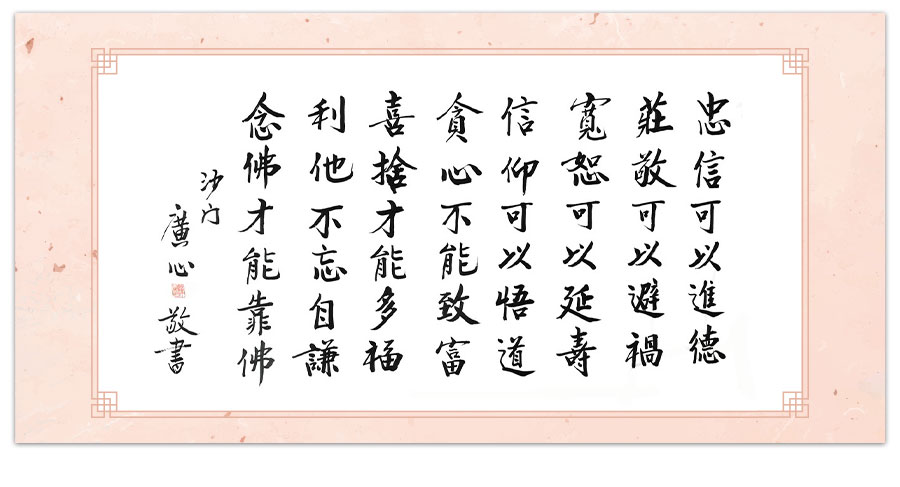 忠信可以進德
莊敬可以避禍
寬恕可以延壽
信仰可以悟道
貪心不能致富
喜捨才能多福
利他不忘自謙
念佛才能靠佛
沙门
廣心
敬書